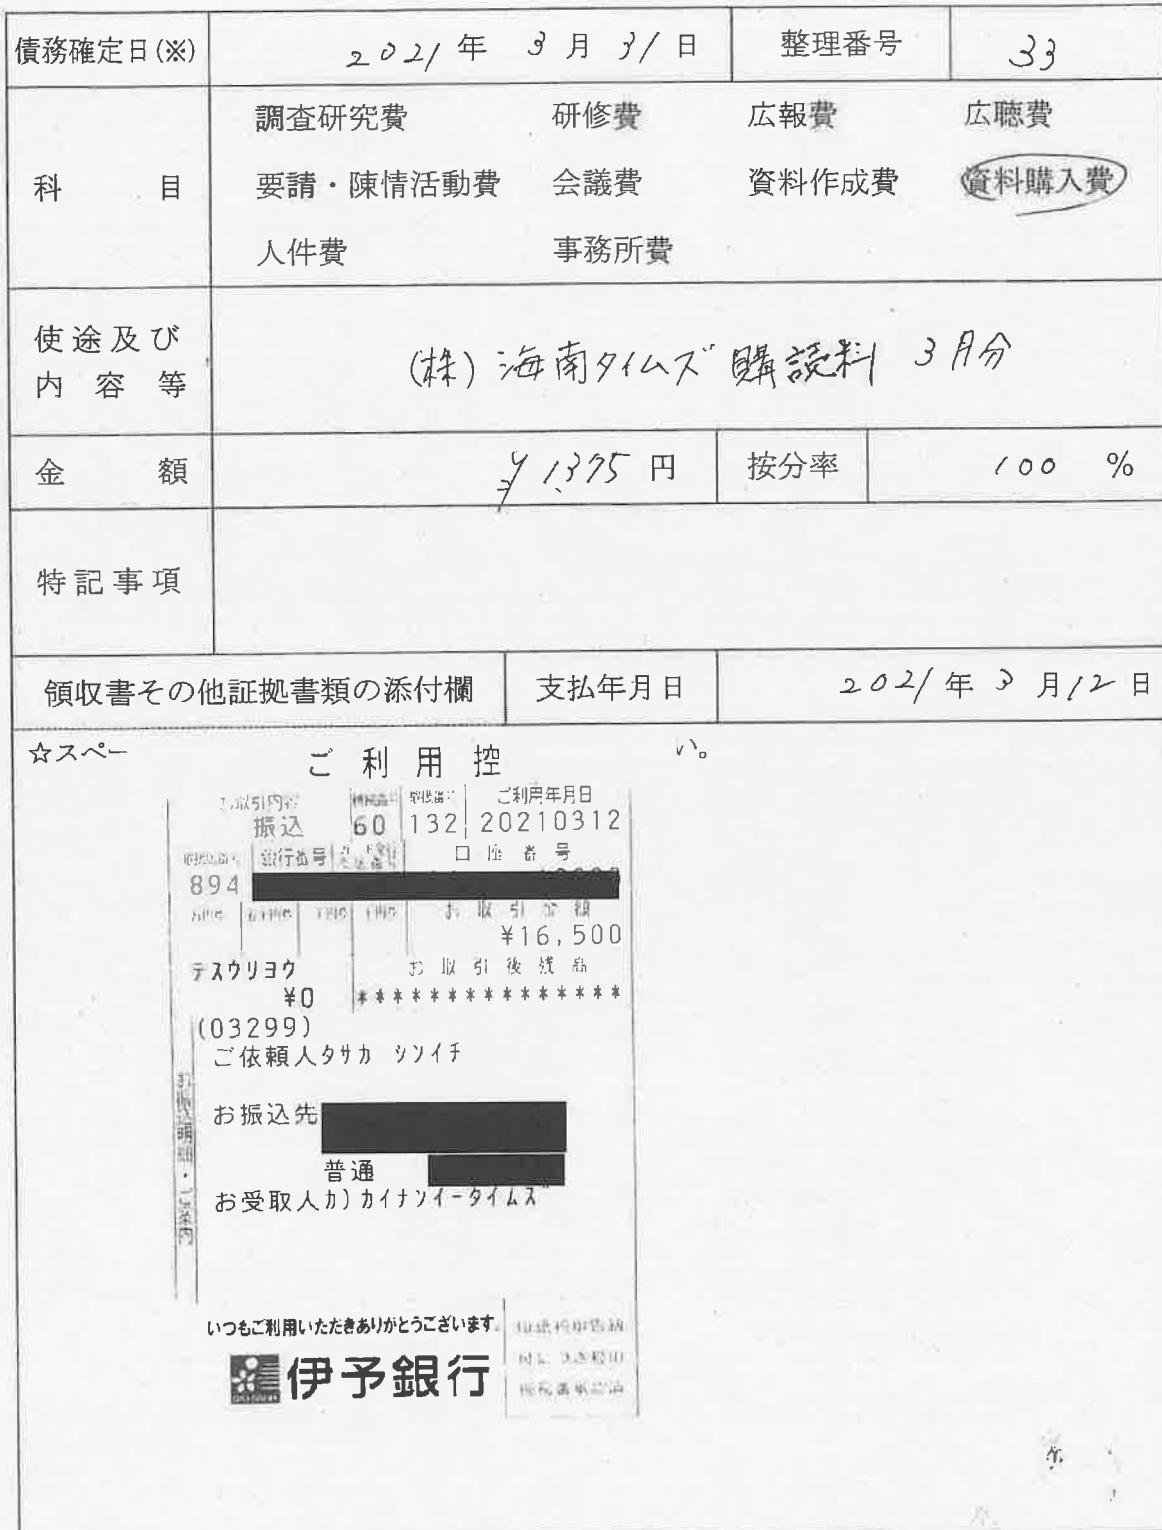 債務確定日(※) 2021年 3月 31日 整理番号 33
科 目 調査研究費 研修費 広報費 広聴費
要請・陳情活動費 会議費 資料作成費 資料購入費
人件費 事務所費
使途及び内容等 (株)海南タイムズ 購読料 3月分
金 額 ¥1,375円 按分率 100 %
特記事項
領収書その他証拠書類の添付欄 支払年月日 2021年 3月12日
☆スペー い。
ご利用控
お取引内容 ご利用年月日
振込 60 132 20210312
銀行番号 口座番号
894
お取引金額
¥16,500
テスウリヨウ お取引後残高
¥0 **************
(03299)
ご依頼人タサカ シンイチ
お振込先
普通
お受取人カ)カイナンイータイムズ
お振込明細・ご案内
いつもご利用いただきありがとうございます。
伊予銀行